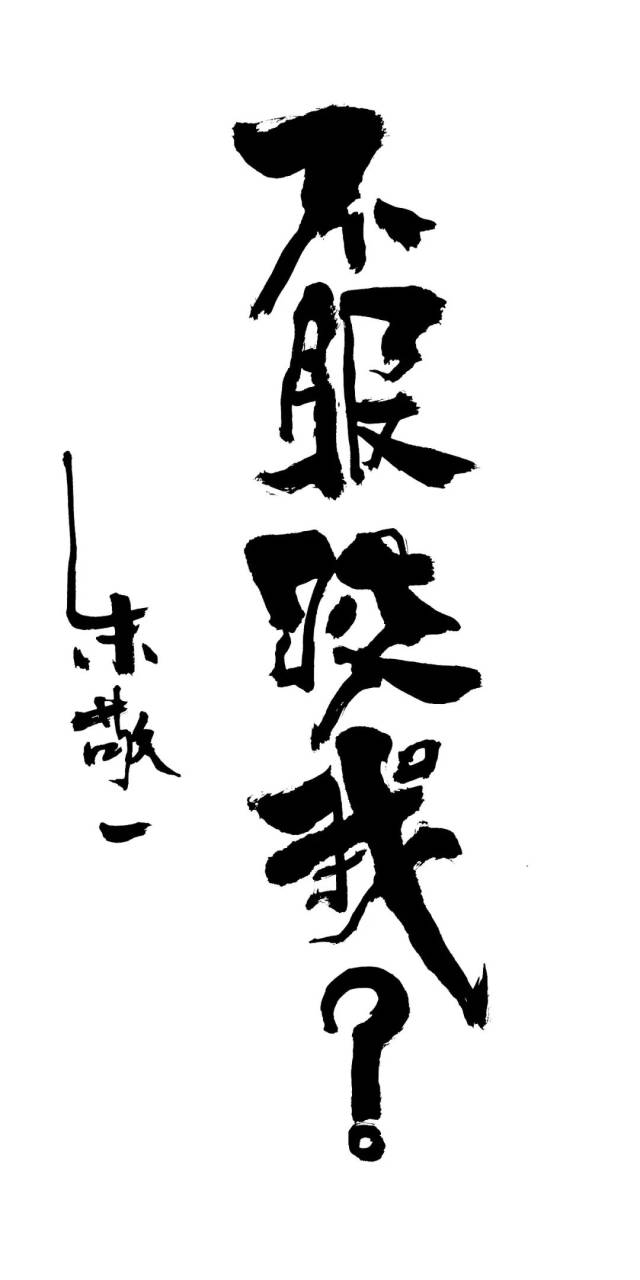 不服咬我?
朱敬一